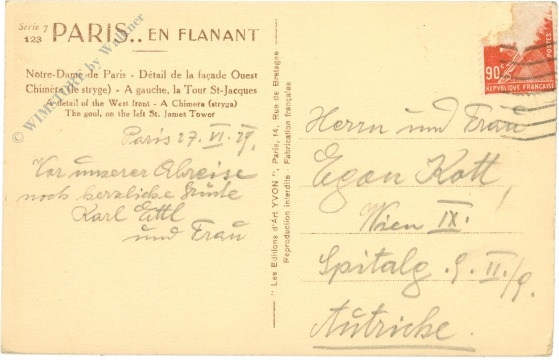 Série 7
123
PARIS.. EN FLANANT
Notre-Dame de Paris - Détail de la façade Ouest
Chimère (le stryge) - A gauche, la Tour St-Jacques
A detail of the West front - A Chimera (stryga)
The goul, on the left St. James Tower
© WIMSTORE by Wallner
Paris 27. VI. 29.
Vor unserer Abreise
noch herzliche Grüße
Karl Eitl
und Frau
" Les Editions d'Art YVON ", Paris, 14, Rue de Bretagne
Reproduction interdite - Fabrication française
90c
POSTES
REPUBLIQUE FRANÇAISE
Herrn und Frau
Egon Kott
Wien IX!
Spitalg. 9. II./9.
Autriche.